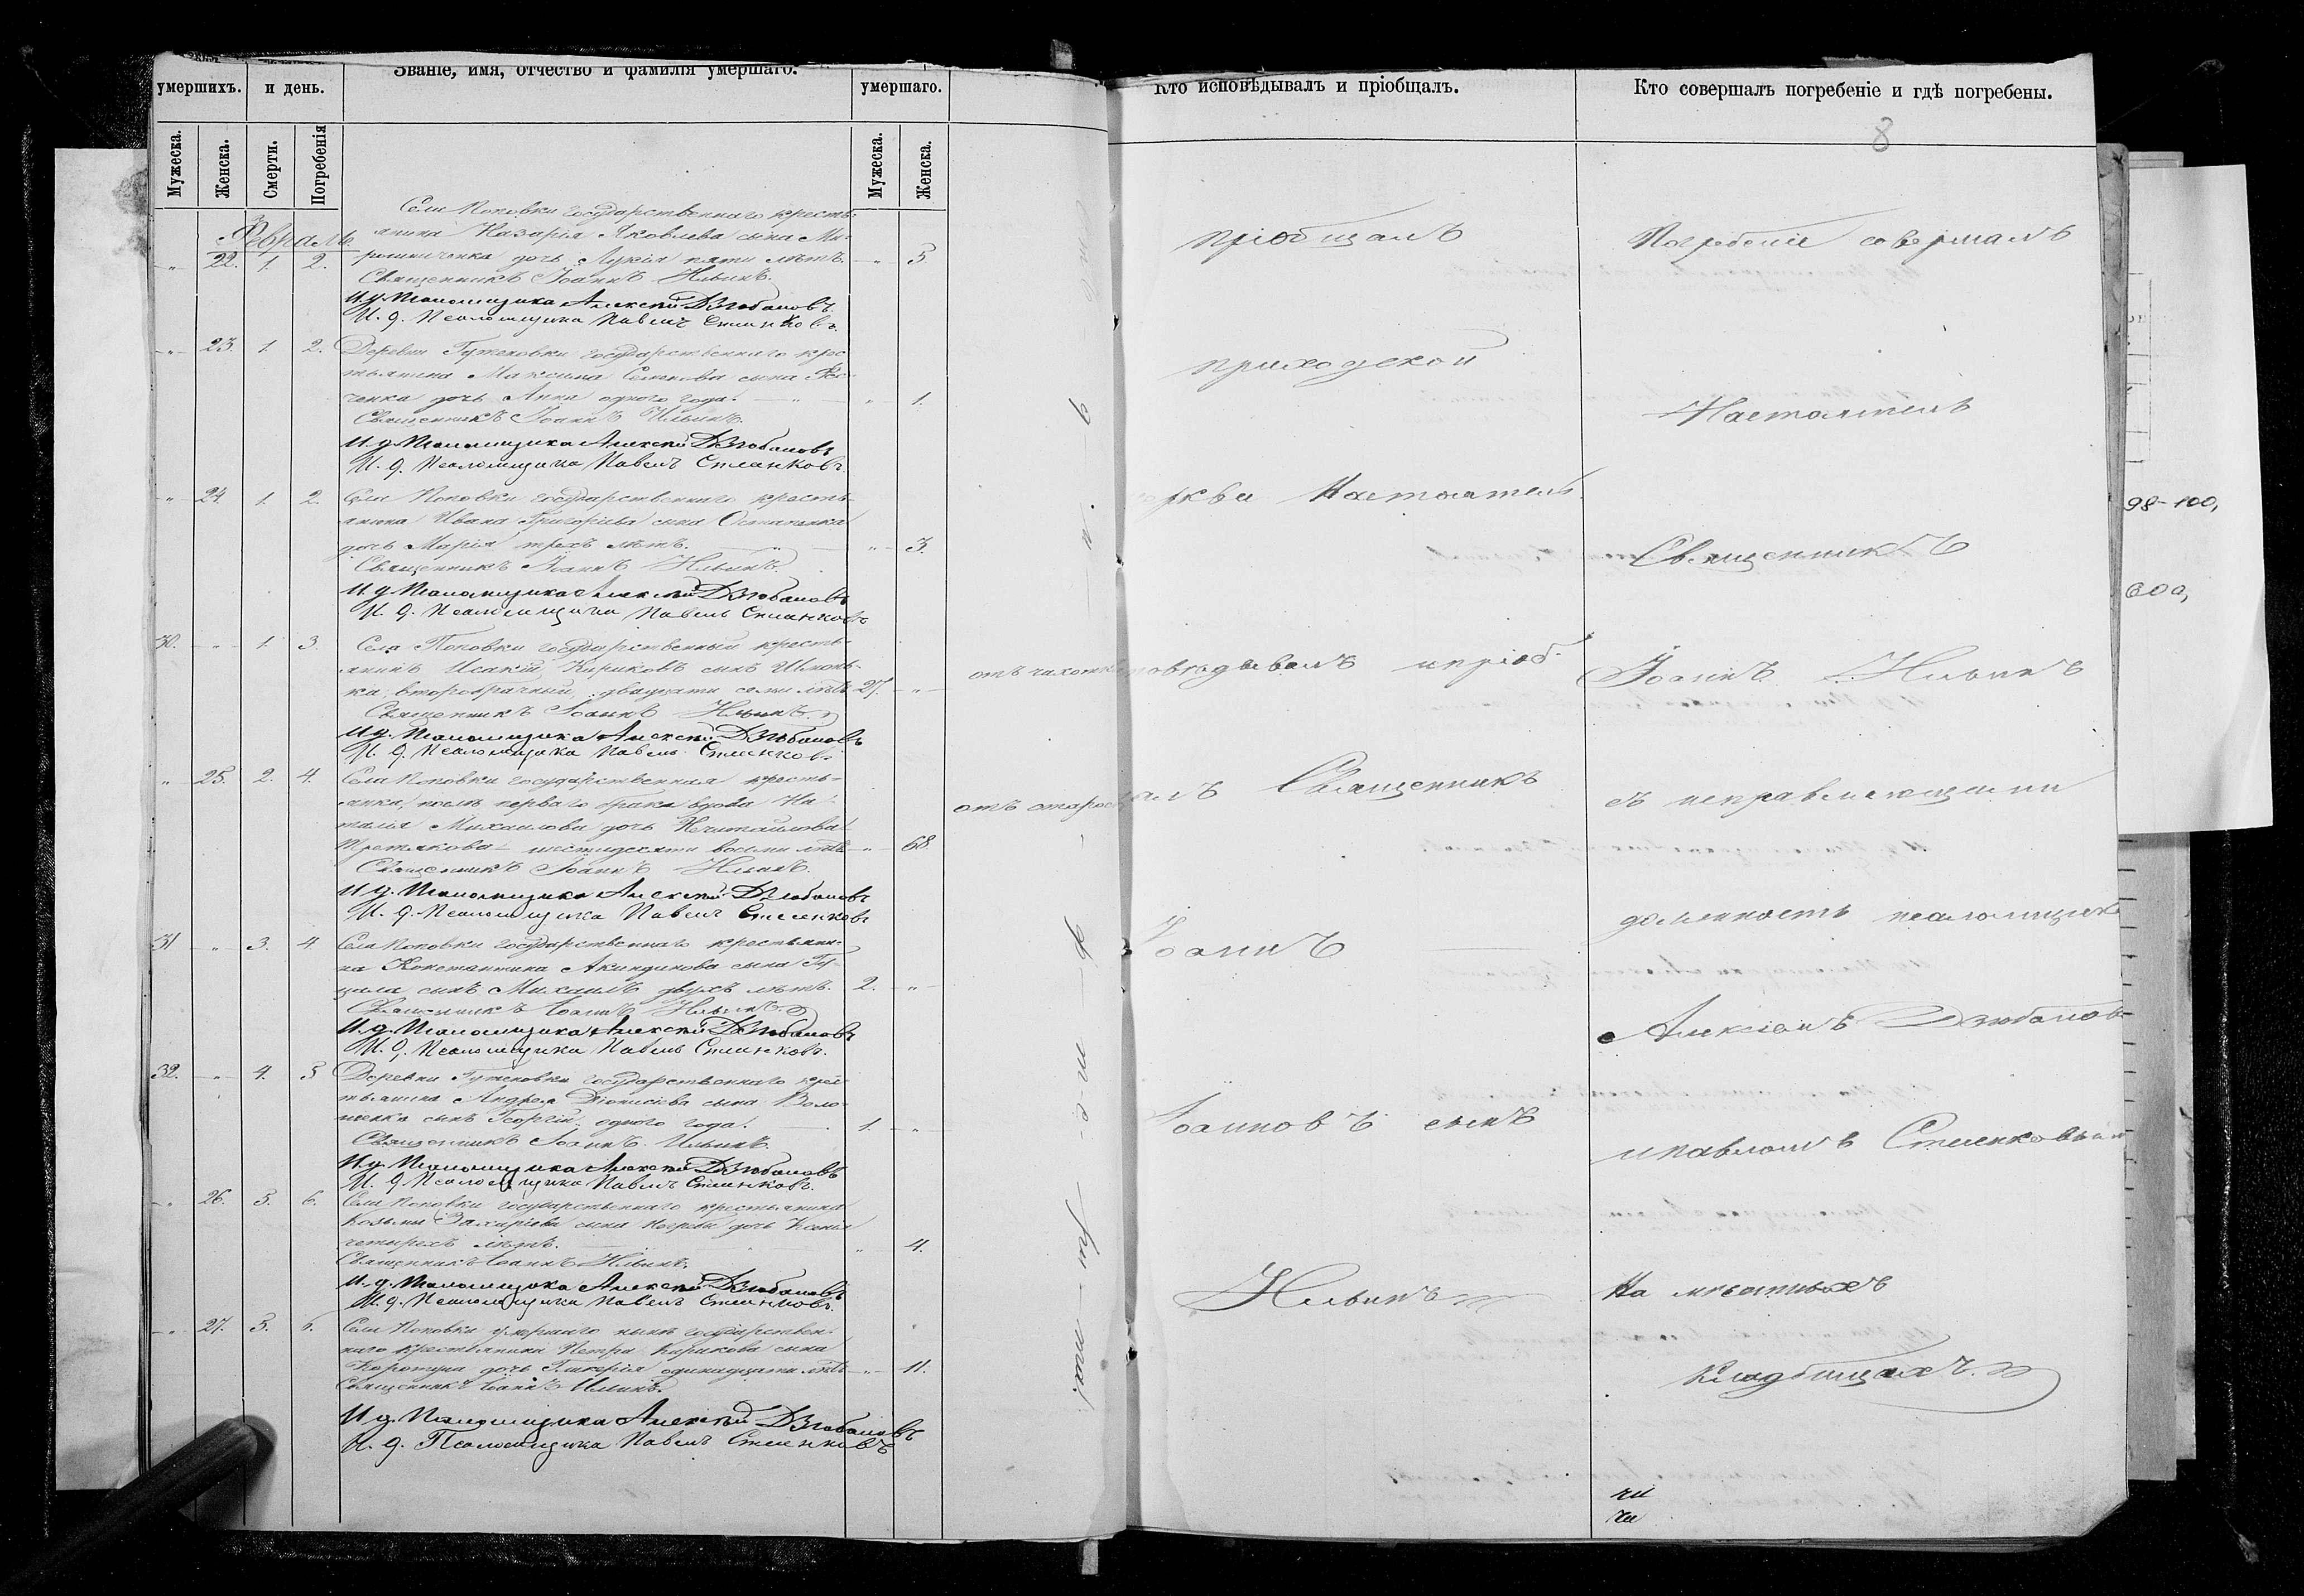 умершихъ.
и день.
Званіе, имя, отчество и фамилія умершаго.
умершаго.
Мужеска.
Женска.
Смерти.
Погребенія
Мужеска.
Женска.
Февраль
Села Поповки государственнаго кресть-
янина Назарія Яковлева сына Ми-
" 22. 1. 2. дочь Лукія пяти лѣтъ. " 5
Священникъ Іоаннъ Ильинъ.
И. д. Псаломщика Алексѣй Дзюбановъ
И. д. Псаломщика Павелъ Стеленковъ.
" 23. 1. 2. Деревни Гутековки государственнаго крес-
тьянина Максима Семенова сына
ченка дочь Анна одного года. " 1.
Священникъ Іоаннъ Ильинъ.
И. д. Псаломщика Алексѣй Дзюбановъ
И. д. Псаломщика Павелъ Стеленковъ.
" 24. 1. 2. Села Поповки государственнаго кресть-
янина Ивана Григорьева сына Остапенка
дочь Марія трехъ лѣтъ. " 3.
Священникъ Іоаннъ Ильинъ.
И. д. Псаломщика Алексѣй Дзюбановъ
И. д. Псаломщика Павелъ Стеленковъ
30. " 1. 3. Села Поповки государственный кресть-
янинъ Исакій Кириковъ сынъ Шмонь-
ка, второбрачный, двадцати семи лѣтъ 27. " отъ чахотки
Священникъ Іоаннъ Ильинъ.
И. д. Псаломщика Алексѣй Дзюбановъ
И. д. Псаломщика Павелъ Стеленковъ.
" 25. 2. 4. Села Поповки государственная кресть-
янка, послѣ перваго брака вдова На-
талія Михаилова дочь Нечитайлова
Третякова шестидесяти восьми лѣтъ " 68. отъ старос
Священникъ Іоаннъ Ильинъ.
И. д. Псаломщика Алексѣй Дзюбановъ
И. д. Псаломщика Павелъ Стеленковъ
31 " 3. 4. Села Поповки государственнаго крестьяни-
на Константина Акиндинова сына Гу-
цала сынъ Михаилъ двухъ лѣтъ. 2. "
Священникъ Іоаннъ Ильинъ
И. д. Псаломщика Алексѣй Дзюбановъ
И. д. Псаломщика Павелъ Стеленковъ.
32. " 4. 5 Деревни Гутековки государственнаго крес-
тьянина Андрея Діонисіева сына Воло-
шенка сынъ Георгій одного года. 1. "
Священникъ Іоаннъ Ильинъ.
И. д. Псаломщика Алексѣй Дзюбановъ
И. д. Псаломщика Павелъ Стеленковъ.
" 26. 5. 6. Села Поповки государственнаго крестьянина
Козьмы Захаріева сына дочь Ксенія
четырехъ лѣтъ. " 4.
Священникъ Іоаннъ Ильинъ.
И. д. Псаломщика Алексѣй Дзюбановъ
И. д. Псаломщика Павелъ Стеленковъ.
" 27. 5. 6. Села Поповки умершаго нынѣ государствен-
наго крестьянина Петра Кирикова сына
Коротуна дочь Гликерія одинадцати лѣтъ " 11.
Священникъ Іоаннъ Ильинъ.
И. д. Псаломщика Алексѣй Дзюбановъ
И. д. Псаломщика Павелъ Стеленковъ
Кто исповѣдывалъ и пріобщалъ.
Кто совершалъ погребеніе и гдѣ погребены.
8
пріобщалъ
приходской
ркви Настоятель
повѣдывалъ и пріоб-
алъ Священникъ
Іоаннъ
Іоанновъ сынъ
Ильинъ
Погребеніе совершалъ
Настоятель
Священникъ
Іоаннъ Ильинъ
съ исправляющими
должность псаломщика
Алексіемъ Дзюбанов-
и Павломъ Стеленковым
На мѣстныхъ
кладбищахъ.
98-100,
600,